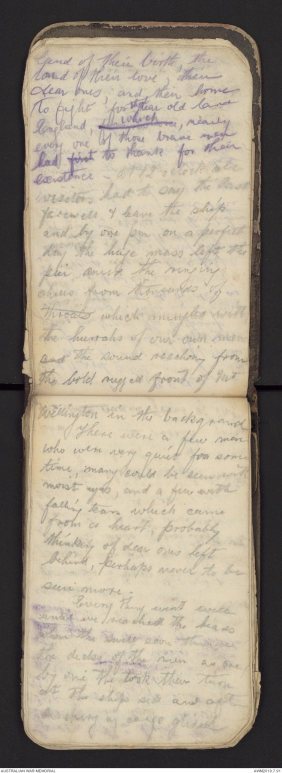 land of their birth, the
land of their love, their
dear ones, and their homes
to fight, for the dear old land
England, which, nearly
every one of those brave men
had first to thank for their
existence. At 12 o'clock all
visitors had to say the last
farewell & leave the ship
and by one pm on a perfect
day the huge mass left the
pier amid the ringing
cheers from thousands of
throats which mingled with
the hurrahs of our own men
and the sound reechoing from
the bold rugged front of Mt
Wellington in the background
There were a few men
who were very quiet for some
time, many could be seen with
moist eyes, and a few with
falling tears which came
from a heart, probably
thinking of dear ones left
behind, perhaps never to be
seen more.
Every thing went well
until we reached the heads
when the swell
the decks of the men as one
by one they took their turn
at the ships side and